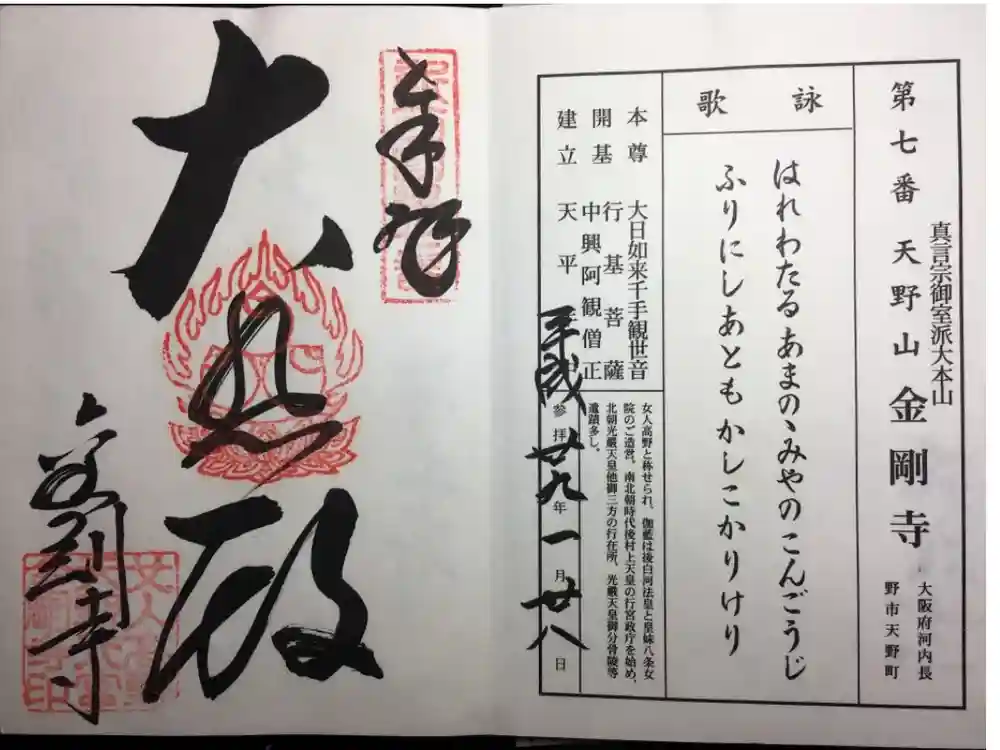 真言宗御室派大本山
第七番 天野山 金剛寺
大阪府河内長
野市天野町
詠歌
はれわたるあまのゝみやのこんごうじ
ふりにしあともかしこかりけり
本尊 大日如来千手観世音
開基 行基菩薩
中興阿観僧正
建立 天平年中
女人高野と称せられ、伽藍は後白河法皇と皇妹八条女
院のご造営。南北朝時代後村上天皇の行宮政庁を始め、
北朝光厳天皇他御三方の行在所、光厳天皇御分骨陵等
遺蹟多し。
平成廿九年一月廿八日
参拝
奉拝
大悲殿
金剛寺